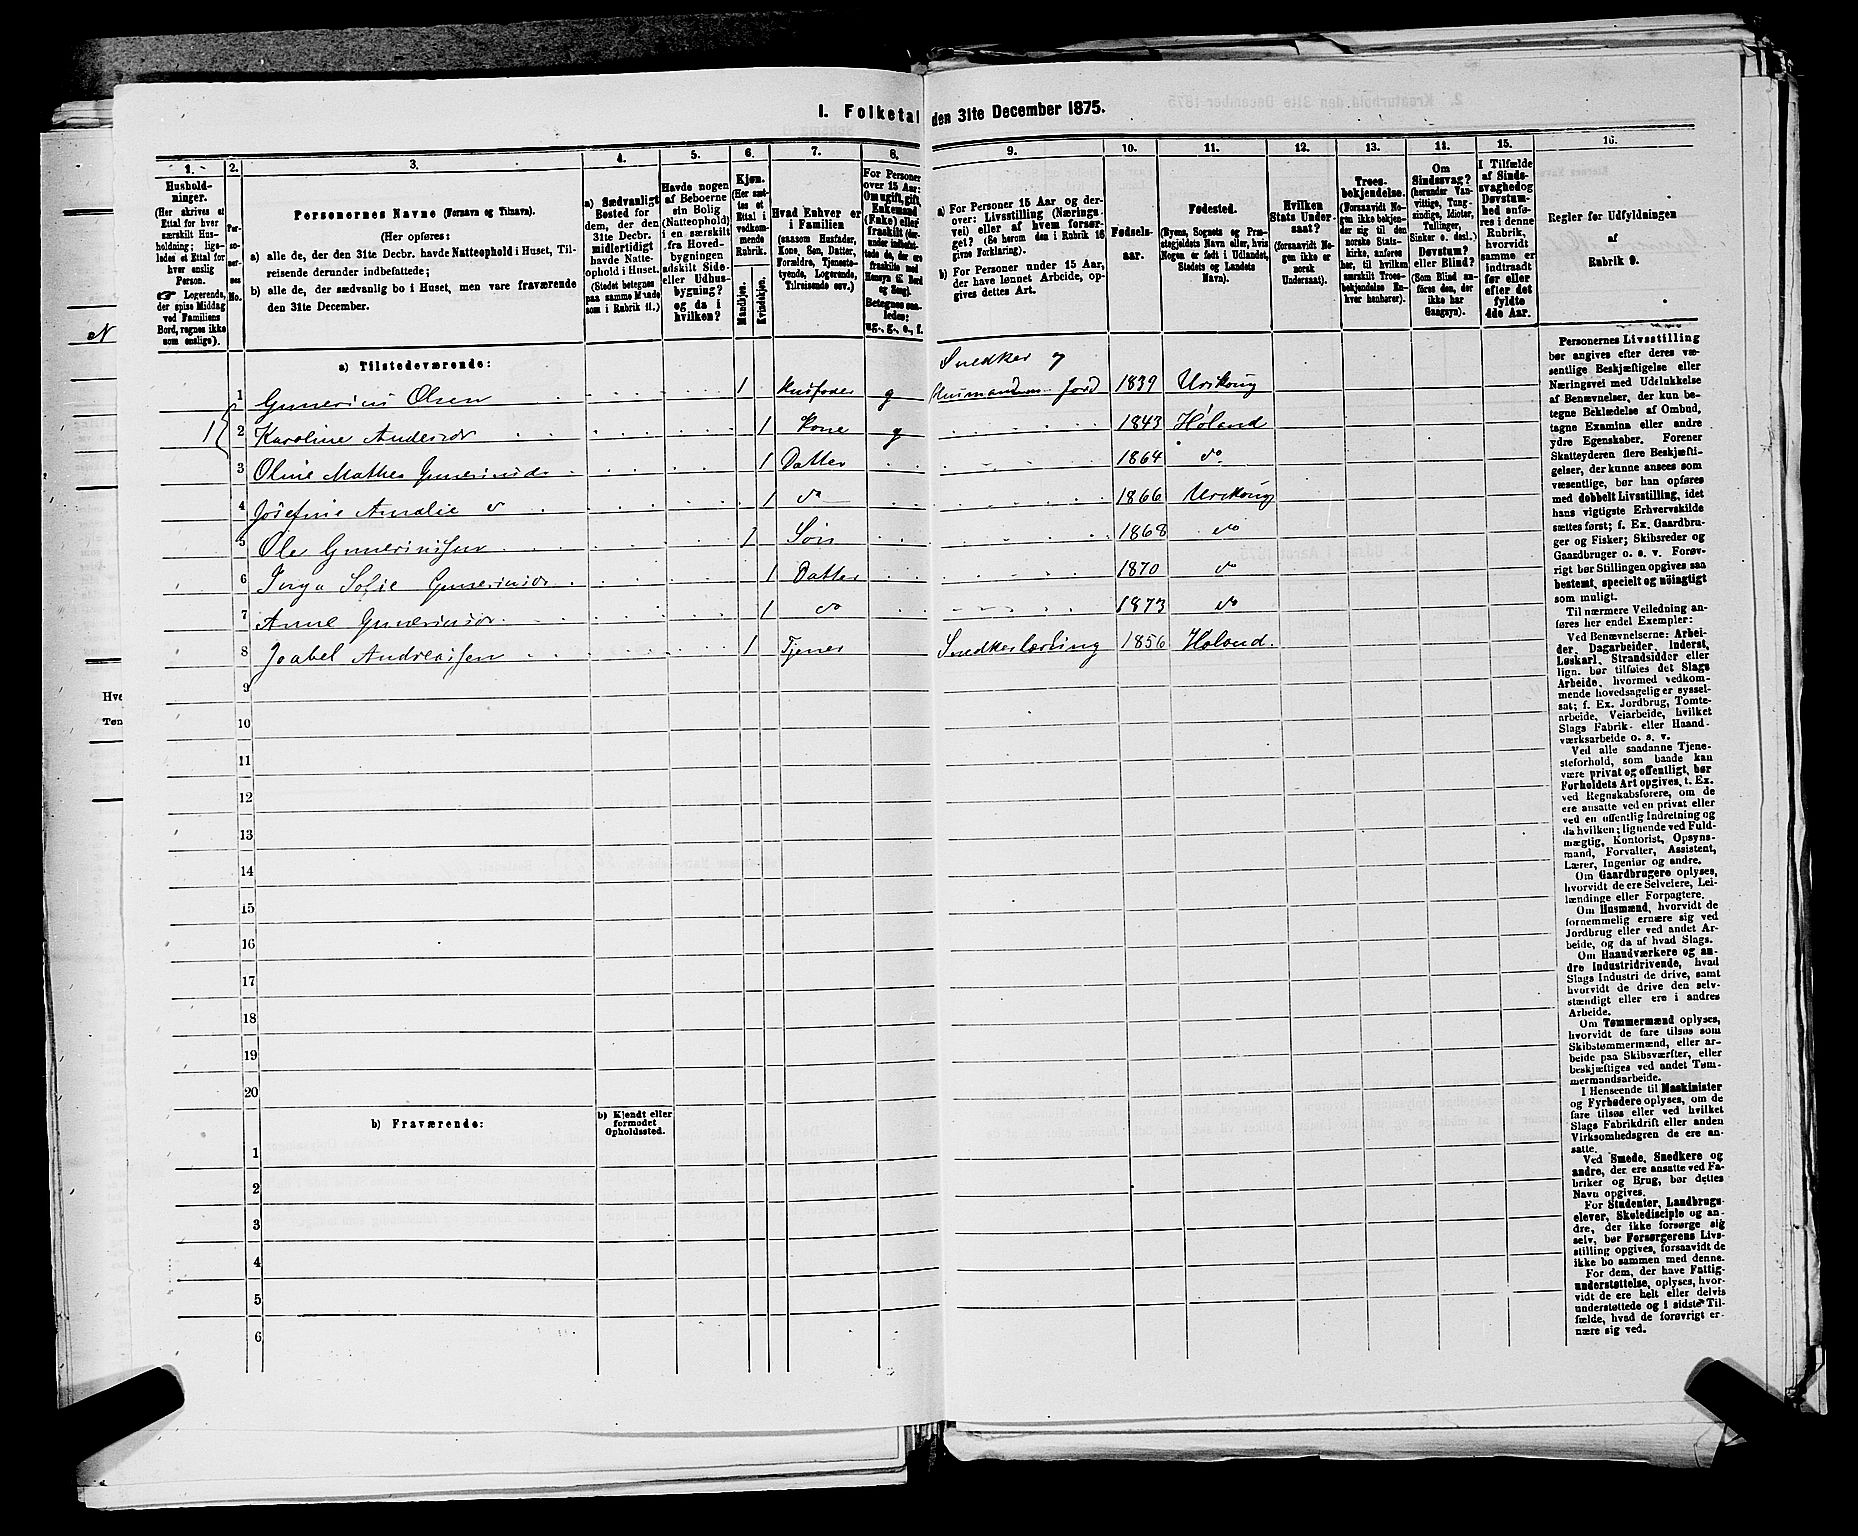 1. Folketal den 31te December 1875.
1. 2. 3. 4. 5. 6. 7. 8. 9. 10. 11. 12. 13. 14. 15. 16.
Hushold-
ninger.
(Her skrives et
Ettal for hver
særskilt Hus-
holdning; lige-
ledes et Ettal for
hver enslig
Person.
☞ Logerende,
der spise Middag
ved Familiens
Bord, regnes ikke
som enslige).
Personernes No.
Personernes Navne (Fornavn og Tilnavn).
(Her opføres:
a) alle de, der den 31te Decbr. havde Natteophold i Huset, Til-
reisende derunder indbefattede;
b) alle de, der sædvanlig bo i Huset, men vare fraværende
den 31te December.
a) Sædvanligt
Bosted for
dem, der den
31te Decbr.
midlertidigt
havde Natte-
ophold i Huset.
(Stedet betegnes
paa samme Maade
som i Rubrik 11.)
Havde nogen
af Beboerne
sin Bolig
(Natteophold)
i en særskilt
fra Hoved-
bygningen
adskilt Side-
eller Udhus-
bygning?
og da i
hvilken?
Kjøn.
(Her sæt-
tes et
Ettal i
vedkom-
mende
Rubrik.
Mandkjøn.
Kvindekjøn.
Hvad Enhver er
i Familien
(saasom Husfader,
Kone, Søn, Datter,
Forældre, Tjeneste-
tyende, Logerende,
Tilreisende osv.)
For Personer
over 15 Aar:
Om ugift, gift,
Enkemand
(Enke) eller
fraskilt (der-
under indbefat-
tede de, der ere
fraskilte med
Hensyn til Bord
og Seng).
Betegnes saa-
ledes:
ug., g., e., f.
a) For Personer 15 Aar og der-
over: Livsstilling (Nærings-
vei) eller af hvem forsør-
get? (Se herom den i Rubrik 16
givne Forklaring).
b) For Personer under 15 Aar,
der have lønnet Arbeide, op-
gives dettes Art.
Fødsels-
aar.
Fødested.
(Byens, Sognets og Præ-
stegjeldets Navn eller, hvis
Nogen er født i Udlandet,
Stedets og Landets
Navn).
Hvilken
Stats Under-
saat?
(forsaavidt No-
gen ikke er
norsk
Undersaat).
Troes-
bekjendelse.
(Forsaavidt No-
gen ikke bekjen-
der sig til den
norske Stats-
kirke, anføres
her, til hvilken
særskilt Troes-
bekjendelse En-
hver henhører).
Om
Sindssvag?
(herunder Van-
vittige, Tung-
sindige, Idioter,
Tullinger,
Sinker o. desl.)
Døvstum?
eller Blind?
(Som Blind an-
føres den, der
ikke har
Gangsyn).
I Tilfælde
af Sinds-
svaghed og
Døvstum-
hed anfø-
res i denne
Rubrik,
hvorvidt
samme er
indtraadt
før eller
efter det
fyldte
4de Aar.
Regler for Udfyldningen
af
Rubrik 9.
a) Tilstedeværende:
Snedker og
1 Gunerius Olsen 1 Husfader g Husmand m. Jord 1839 Urskoug
1 2 Karoline Andersdr 1 Kone g 1843 Høland
3 Oline Mathea Guneriusdr 1 Datter 1864 do
4 Josefine Amalie do 1 do 1866 Urskoug
5 Ole Gunerinssen 1 Søn 1868 do
6 Inga Sofie Guneriusdr 1 Datter 1870 do
7 Anne Guneriusdr 1 do 1873 do
8 Isabel Andreassen 1 Tjener Snedkerlærling 1856 Høland.
9
10
11
12
13
14
15
16
17
18
19
20
b) Fraværende:
b) Kjendt eller
formodet
Opholdssted.
1
2
3
4
5
6
Personernes Livsstilling
bør angives efter deres væ-
sentlige Beskjæftigelse eller
Næringsvei med Udelukkelse
af Benævnelser, der kun be-
tegne Beklædelse af Ombud,
tagne Examina eller andre
ydre Egenskaber. Forener
Skatteyderen flere Beskjæfti-
gelser, der kunne ansees som
væsentlige, bør han opføres
med dobbelt Livsstilling, idet
hans vigtigste Erhvervskilde
sættes først; f. Ex. Gaardbru-
ger og Fisker; Skibsreder og
Gaardbruger o. s. v. Forøv-
rigt bør Stillingen opgives saa
bestemt, specielt og nöiagtigt
som muligt.
Til nærmere Veiledning an-
føres her endel Exempler:
Ved Benævnelserne: Arbei-
der, Dagarbeider, Inderst,
Løskarl, Strandsidder eller
lign. bør tilføies det Slags
Arbeide, hvormed vedkom-
mende hovedsagelig er syssel-
sat; f. Ex. Jordbrug, Tomte-
arbeide, Veiarbeide, hvilket
Slags Fabrik- eller Haand-
værksarbeide o. s. v.
Ved alle saadanne Tjene-
steforhold, som baade kan
være privat og offentligt, bør
Forholdets Art opgives, t. Ex.
ved Regnskabsførere, om de
ere ansatte ved en privat eller
ved en offentlig Indretning og
da hvilken; lignende ved Fuld-
mægtig, Kontorist, Opsyns-
mand, Forvalter, Assistent,
Lærer, Ingeniør og andre.
Om Gaardbrugere oplyses,
hvorvidt de ere Selveiere, Lei-
lændinge eller Forpagtere.
Om Husmænd, hvorvidt de
fornemmelig ernære sig ved
Jordbrug eller ved andet Ar-
beide, og da af hvad Slags.
Om Haandværkere og an-
dre Industridrivende, hvad
Slags Industri de drive, samt
hvorvidt de drive den selv-
stændigt eller ere i andres
Arbeide.
Om Tømmermænd oplyses,
hvorvidt de fare tilsøs som
Skibstømmermænd, eller ar-
beide paa Skibsværfter, eller
beskjæftiges ved andet Tøm-
mermandsarbeide.
I Henseende til Maskinister
og Fyrbødere oplyses, om de
fare tilsøs eller ved hvilket
Slags Fabrikdrift eller anden
Virksomhedsgren de ere an-
satte.
Ved Smede, Snedkere og
andre, der ere ansatte ved Fa-
briker og Brug, bør dettes
Navn opgives.
For Studenter, Landbrugs-
elever, Skoledisciple og an-
dre, der ikke forsørge sig
selv, bør Forsørgerens Livs-
stilling opgives, forsaavidt de
ikke bo sammen med denne.
For dem, der have Fattig-
understøttelse, oplyses, hvor-
vidt de ere helt eller delvis
understøttede og i sidste Til-
fælde, hvad de forøvrigt er-
nære sig ved.